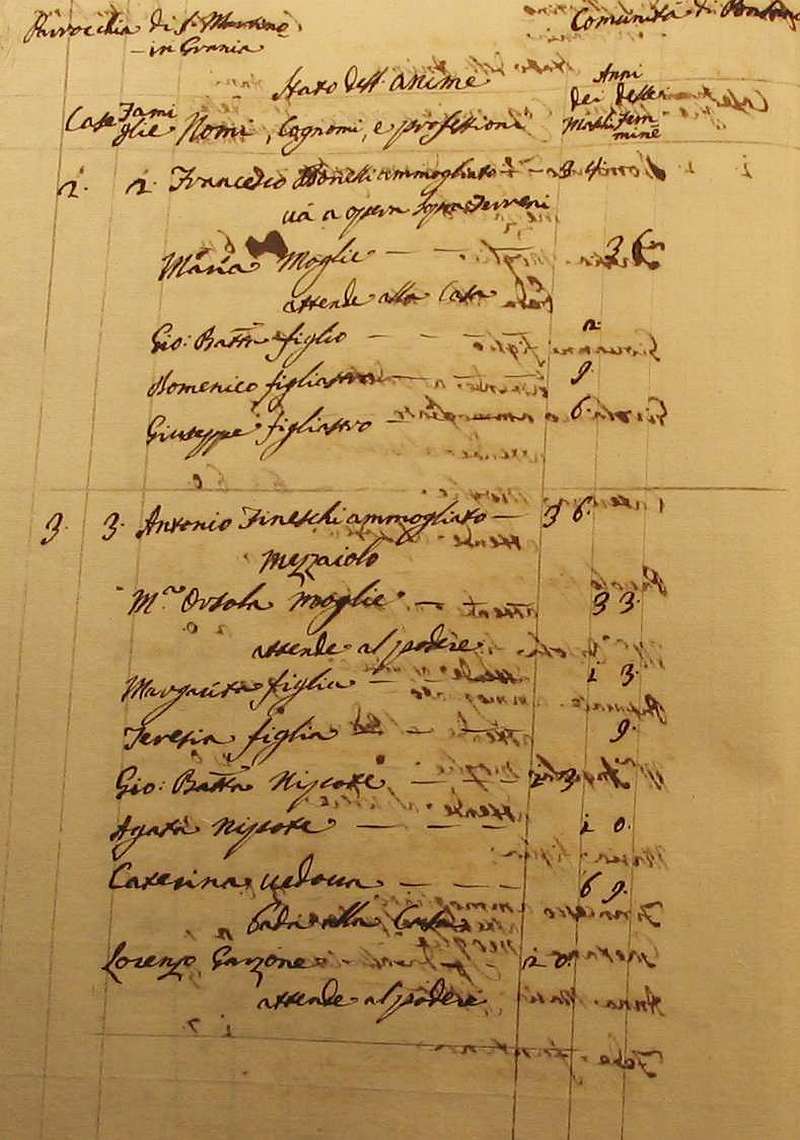 Parrocchia di S. Martino
in Grania
Comunità di
Stato dell'anime
Anni
dei detti
Case Fami
glie Nomi, Cognomi, e professioni
Maschi Fem
mine
2. 2. Francesco Bonelli ammogliato 34
và a opera sopra Terreni
Maria Moglie — 36
attende alla Casa
Gio: Batta figlio — 2
Domenico figliastro — 9.
Giuseppe figliastro — 6.
3. 3. Antonio Fineschi ammogliato — 36.
Mezzaiolo
M.a Orsola moglie — 33.
attende al podere
Margarita figlia — 13.
Teresia figlia — 9.
Gio: Batta Nipote — 23.
Agata Nipote — — — 10.
Caterina vedova — — — 69.
bada alla Casa
Lorenzo Garzone 20.
attende al podere